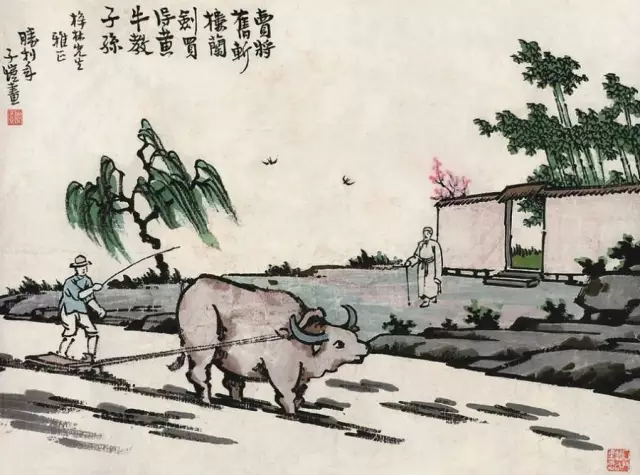 賣將
舊斬
樓蘭
劍買
得黃
牛教
子孫
梓林先生
雅正
勝利年
子愷畫